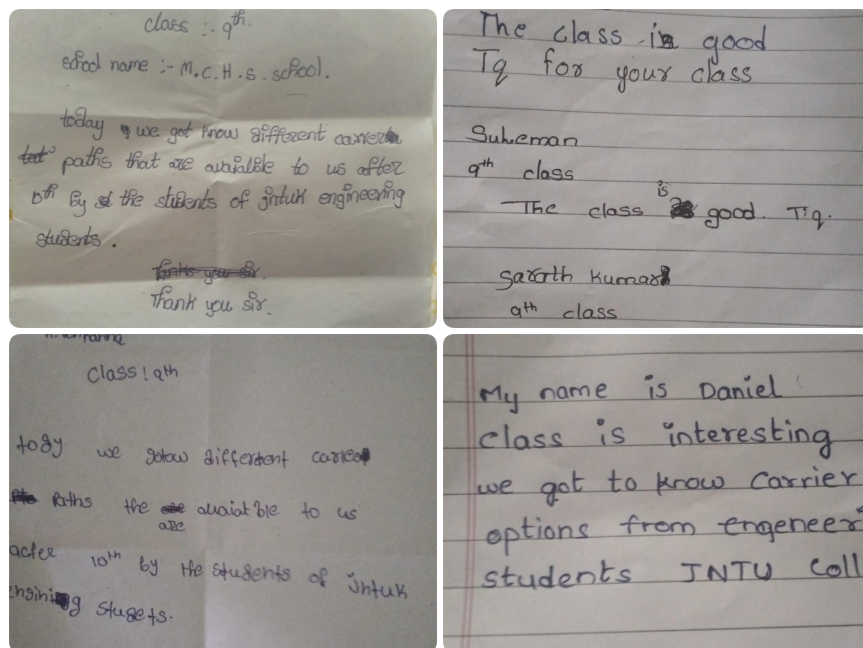 class :- 9th.
school name :- M.C.H.S. school.
today we got know different carrer
paths that are avaialble to us after
10th by the students of jntuk engineering
students.
Thank you sir.
The class is good
Tq for your class
Suleman
9th class
The class is good. Tq.
Sarath Kumar
9th class
Class : 9th
today we different carrer
Paths the are avaiatble to us
acter 10th by the students of jntuk
stugets.
My name is Daniel
class is interesting
we got to know Carrier
options from engeneer
students JNTU Coll